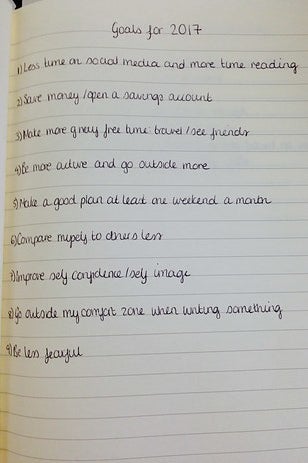 Goals for 2017
1) Less time on social media and more time reading
2) Save money / open a savings account
3) Make more of my free time: travel / see friends
4) Be more active and go outside more
5) Make a good plan at least one weekend a month
6) Compare myself to others less
7) Improve self confidence / self image
8) Go outside my comfort zone when writing something
9) Be less fearful